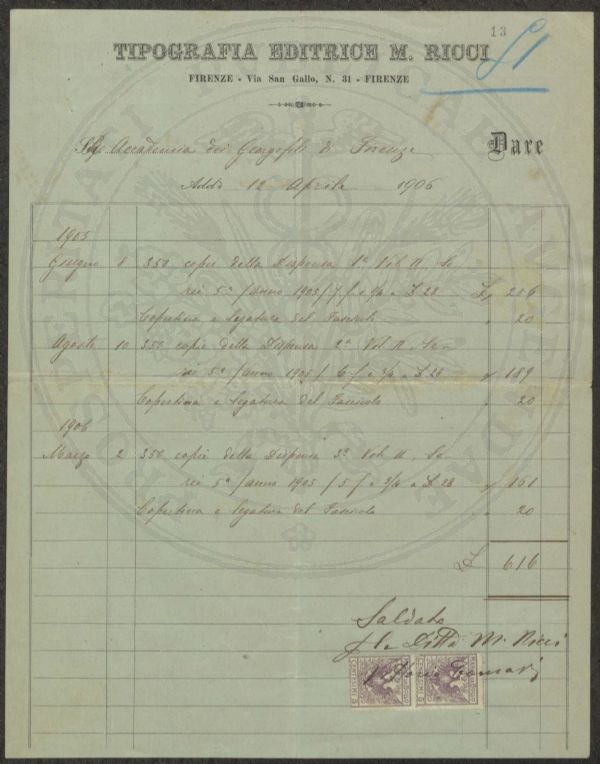 13
51
TIPOGRAFIA EDITRICE M. RICCI
FIRENZE - Via San Gallo, N. 31 - FIRENZE
Accademia dei Georgofili di Firenze
Dare
Addì 12 Aprile 1906
1905
Giugno 8 350 copie della Dispensa 1ª Vol. II, Se
rie 5ª /anno 1905/ 7 f. e a £ 28 £ 206
Copertina e legatura del Fascicolo " 20
Agosto 10 350 copie della Dispensa 2ª Vol. II, Se-
rie 5ª /anno 1905/ 6 f. e 3/4 a £ 28 " 189
Copertina e legatura del Fascicolo " 20
1906
Marzo 2 350 copie della Dispensa 3ª Vol. II, Se
rie 5ª /anno 1905/ 5 f. e 3/4 a £ 28 " 161
Copertina e legatura del Fascicolo " 20
616
Saldato
p. la Ditta M. Ricci